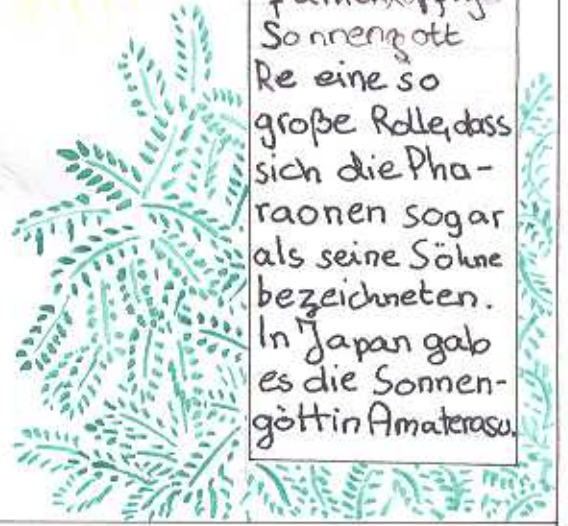 Sonnengott
Re eine so
große Rolle, dass
sich die Pha-
raonen sogar
als seine Söhne
bezeichneten.
In Japan gab
es die Sonnen-
göttin Amaterasu.